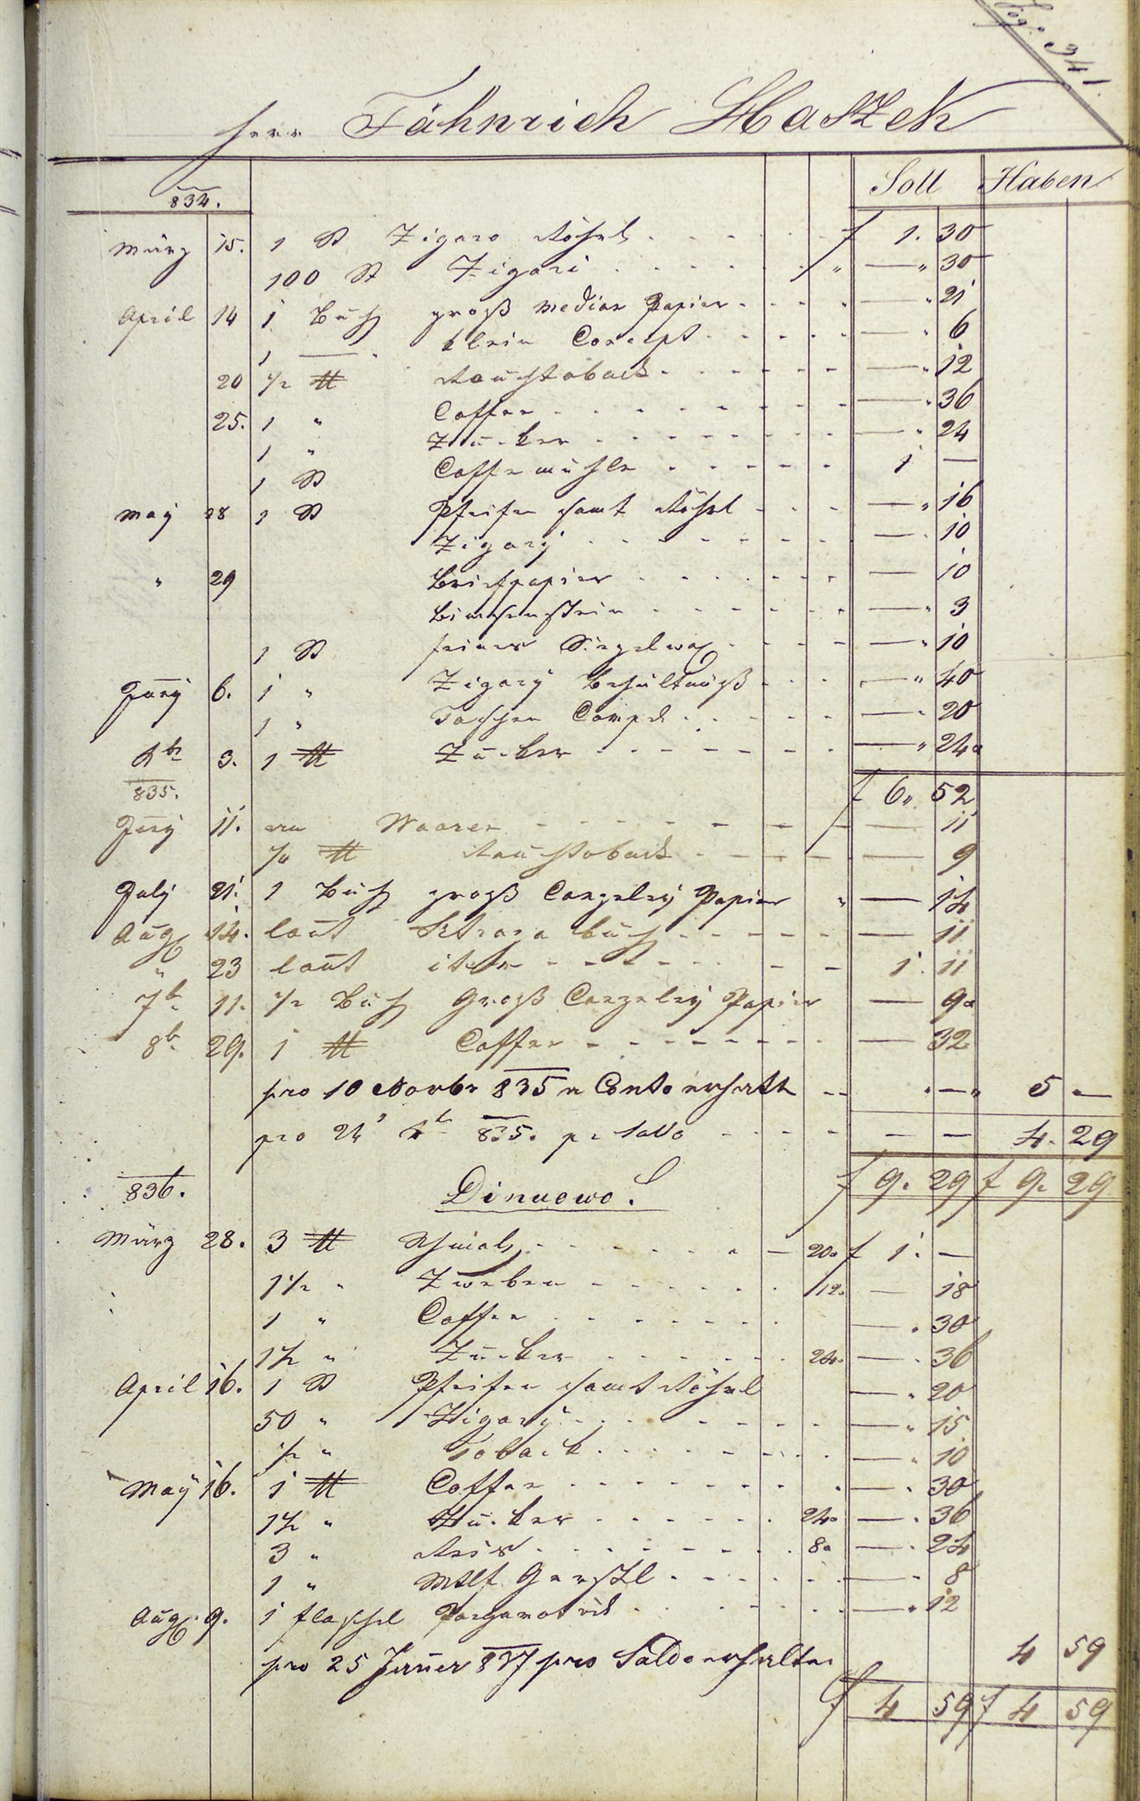 341.
Herr Fähnrich Haszek
Soll Haben
834.
März 15. 1 St Zigaro Röhrl f 1. 30
100 St Zigari " — " 30
April 14 1 Buch groß Median Papier — " 21
1 — klein Concept — " 6
20 1/2 ℔ Rauchtaback — " 12
25. 1 " Caffee — " 36
1 " Zucker — " 24
1 St Caffemühle 1 —
May 28 1 St Pfeifen samt Röhrl — " 16
Zigary — " 10
" 29 Briefpapier — 10
Bimsenstein — " 3
1 St feines Siegelwax — " 10
Juny 6. 1 " Zigary Behältnüß — " 40
1 " Taschen — " 20
3. 1 ℔ Zucker — " 24
835. f 6 " 52
Juny 11. Waaren — 11
℔ Rauchtaback — 9
July 21. 1 Buch groß Canzeley Papier " — 14
Aug 14. laut Strazza buch — 11
" 23 laut itto 1. 11
7br 11. 1/2 Buch Groß Canzeley Papier — 9
8br 29. 1 ℔ Caffee — 32
pro 10 Novbr 835 a Conto erhalte " — " 5 —
pro 24 835. pr Saldo — — 4. 29
f 9. 29 f 9. 29
836. Dinuovo.
März 28. 3 ℔ Schmalz 20 f 1. —
1 1/2 " Zweben 12 — 18
1 " Caffee — " 30
1 1/2 " Zucker 24 — " 36
April 16. 1 St Pfeifen samt Röhrl — " 20
50 " Zigary — " 15
1/2 " Taback — " 10
May 16. 1 ℔ Caffee — " 30
1 1/2 " Zucker 24 — " 36
3 " Reis 8 — " 24
1 " Gerstl — " 8
Aug. 9. 1 Flaschel — " 12
pro 25 Jäner 837 pro Saldo erhalten 4 59
f 4 59 f 4 59